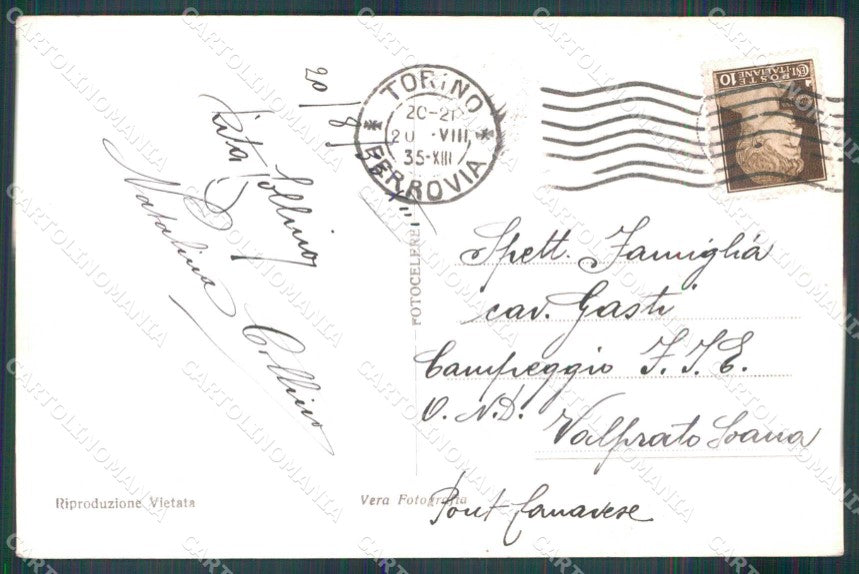 20/8/35 XIII
Rita Collino
Natalina Collino
TORINO
20-21
20 VIII
35-XIII
FERROVIA
CENT. 10
POSTE
ITALIANE
Spett. Famiglia
cav. Gasti
Campeggio F.I.E.
O.N.D.
Valprato Soana
Pont Canavese
FOTOCELERE
Riproduzione Vietata
Vera Fotografia
CARTOLINOMANIA